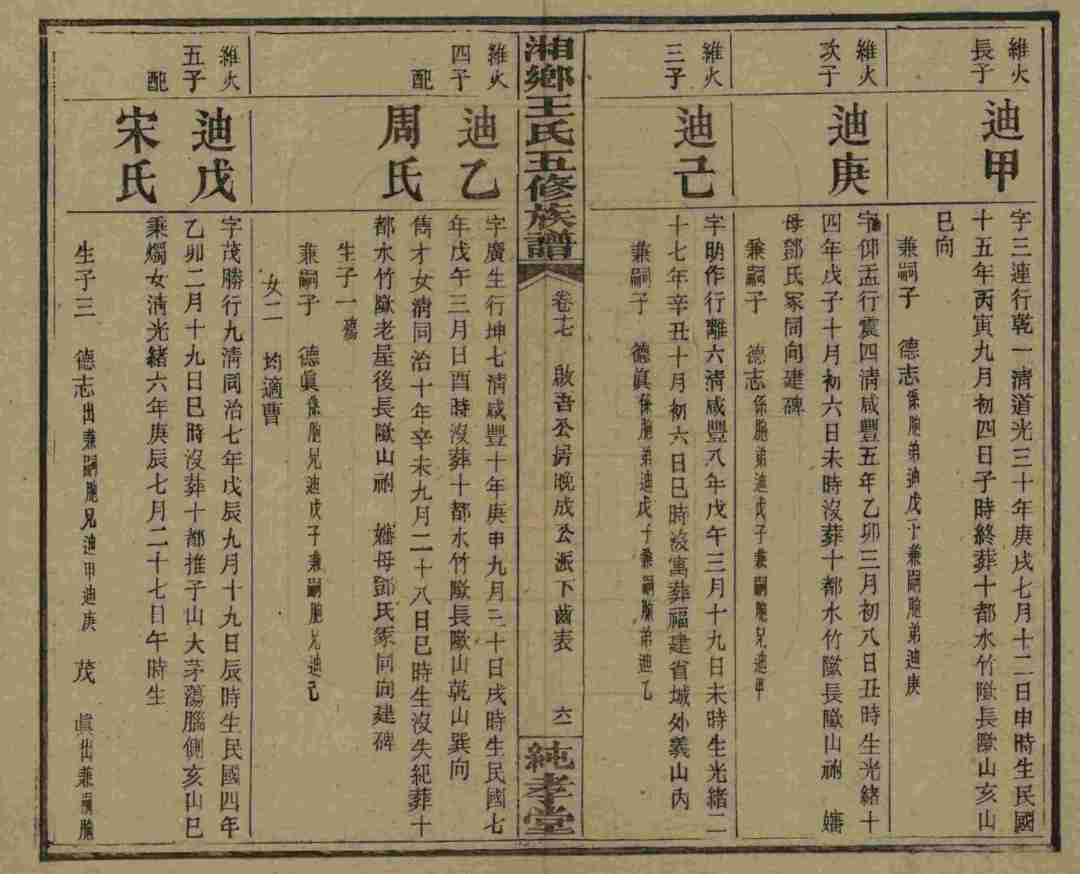 維火
長子
迪甲
字三連行乾一清道光三十年庚戌七月十二日申時生民國
十五年丙寅九月初四日子時終葬十都水竹隞長隞山亥山
巳向
兼嗣子 德志係胞弟迪戊子兼嗣胞弟迪庚
維火
次子
迪庚
字仰孟行震四清咸豐五年乙卯三月初八日丑時生光緒十
四年戊子十月初六日未時沒葬十都水竹隞長隞山祔 嬸
母鄧氏冢同向建碑
兼嗣子 德志係胞弟迪戊子兼嗣胞兄迪甲
維火
三子
迪己
字明作行離六清咸豐八年戊午三月十九日未時生光緒二
十七年辛丑十月初六日巳時沒寓葬福建省城外義山內
兼嗣子 德眞係胞弟迪戊子兼嗣胞弟迪乙
湘鄉王氏五修族譜
卷十七 啟吾公房晚成公派下齒表 六一
純孝堂
維火
四子
迪乙
字廣生行坤七清咸豐十年庚申九月三十日戌時生民國七
年戊午三月日酉時沒葬十都水竹隞長隞山乾山巽向
配
周氏
舊才女清同治十年辛未九月二十八日巳時生沒失紀葬十
都水竹隞老屋後長隞山祔 嬸母鄧氏冢同向建碑
生子一殤
兼嗣子 德眞係胞兄迪戊子兼嗣胞兄迪己
女二 均適曹
維火
五子
迪戊
字茂勝行九清同治七年戊辰九月十九日辰時生民國四年
乙卯二月十九日巳時沒葬十都推子山大茅蕩腦側亥山巳
配
宋氏
秉燭女清光緒六年庚辰七月二十七日午時生
生子三 德志出兼嗣胞兄迪甲迪庚 茂 眞出兼嗣胞